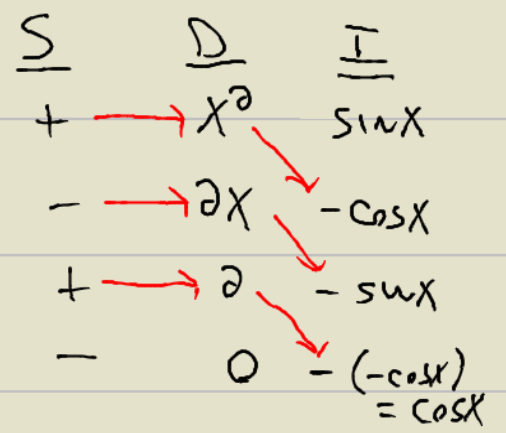 S D I
+ x² sinx
- 2x -cosx
+ 2 -sinx
- 0 -(-cosx)
= cosx